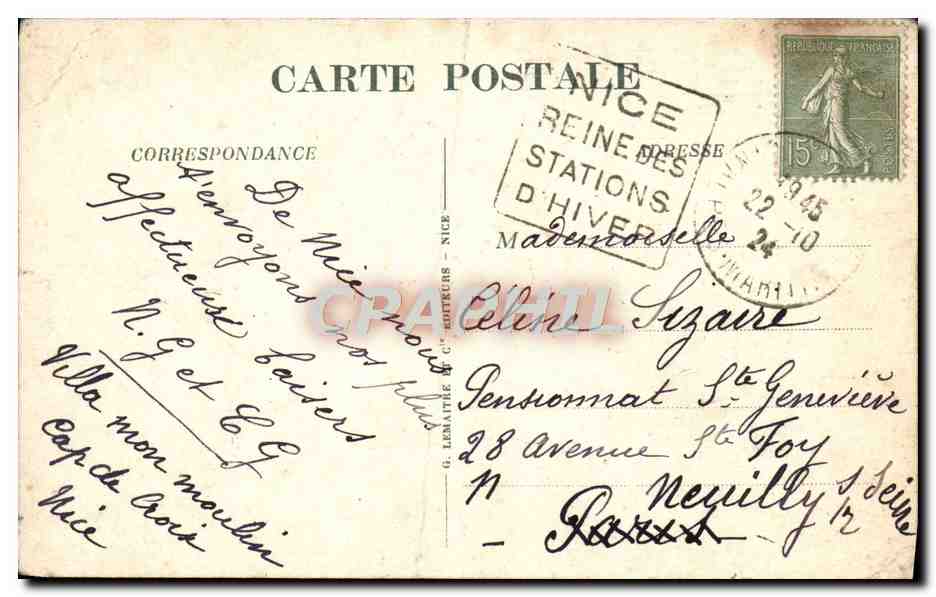 CARTE POSTALE
CORRESPONDANCE
ADRESSE
REPUBLIQUE FRANÇAISE
15
POSTES
NICE
REINE DES
STATIONS
D'HIVER
19 45
22 - 10
24
De Nice nous
t'envoyons nos plus
affectueux baisers
N. G et C G
Villa mon moulin
Cap de Croix
Nice
G. LEMAITRE ET Cie EDITEURS - NICE
Mademoiselle
Céline Sizaire
Pensionnat Ste Geneviève
28 Avenue Ste Foy
Neuilly s Seine
Paris
CPAPHIL